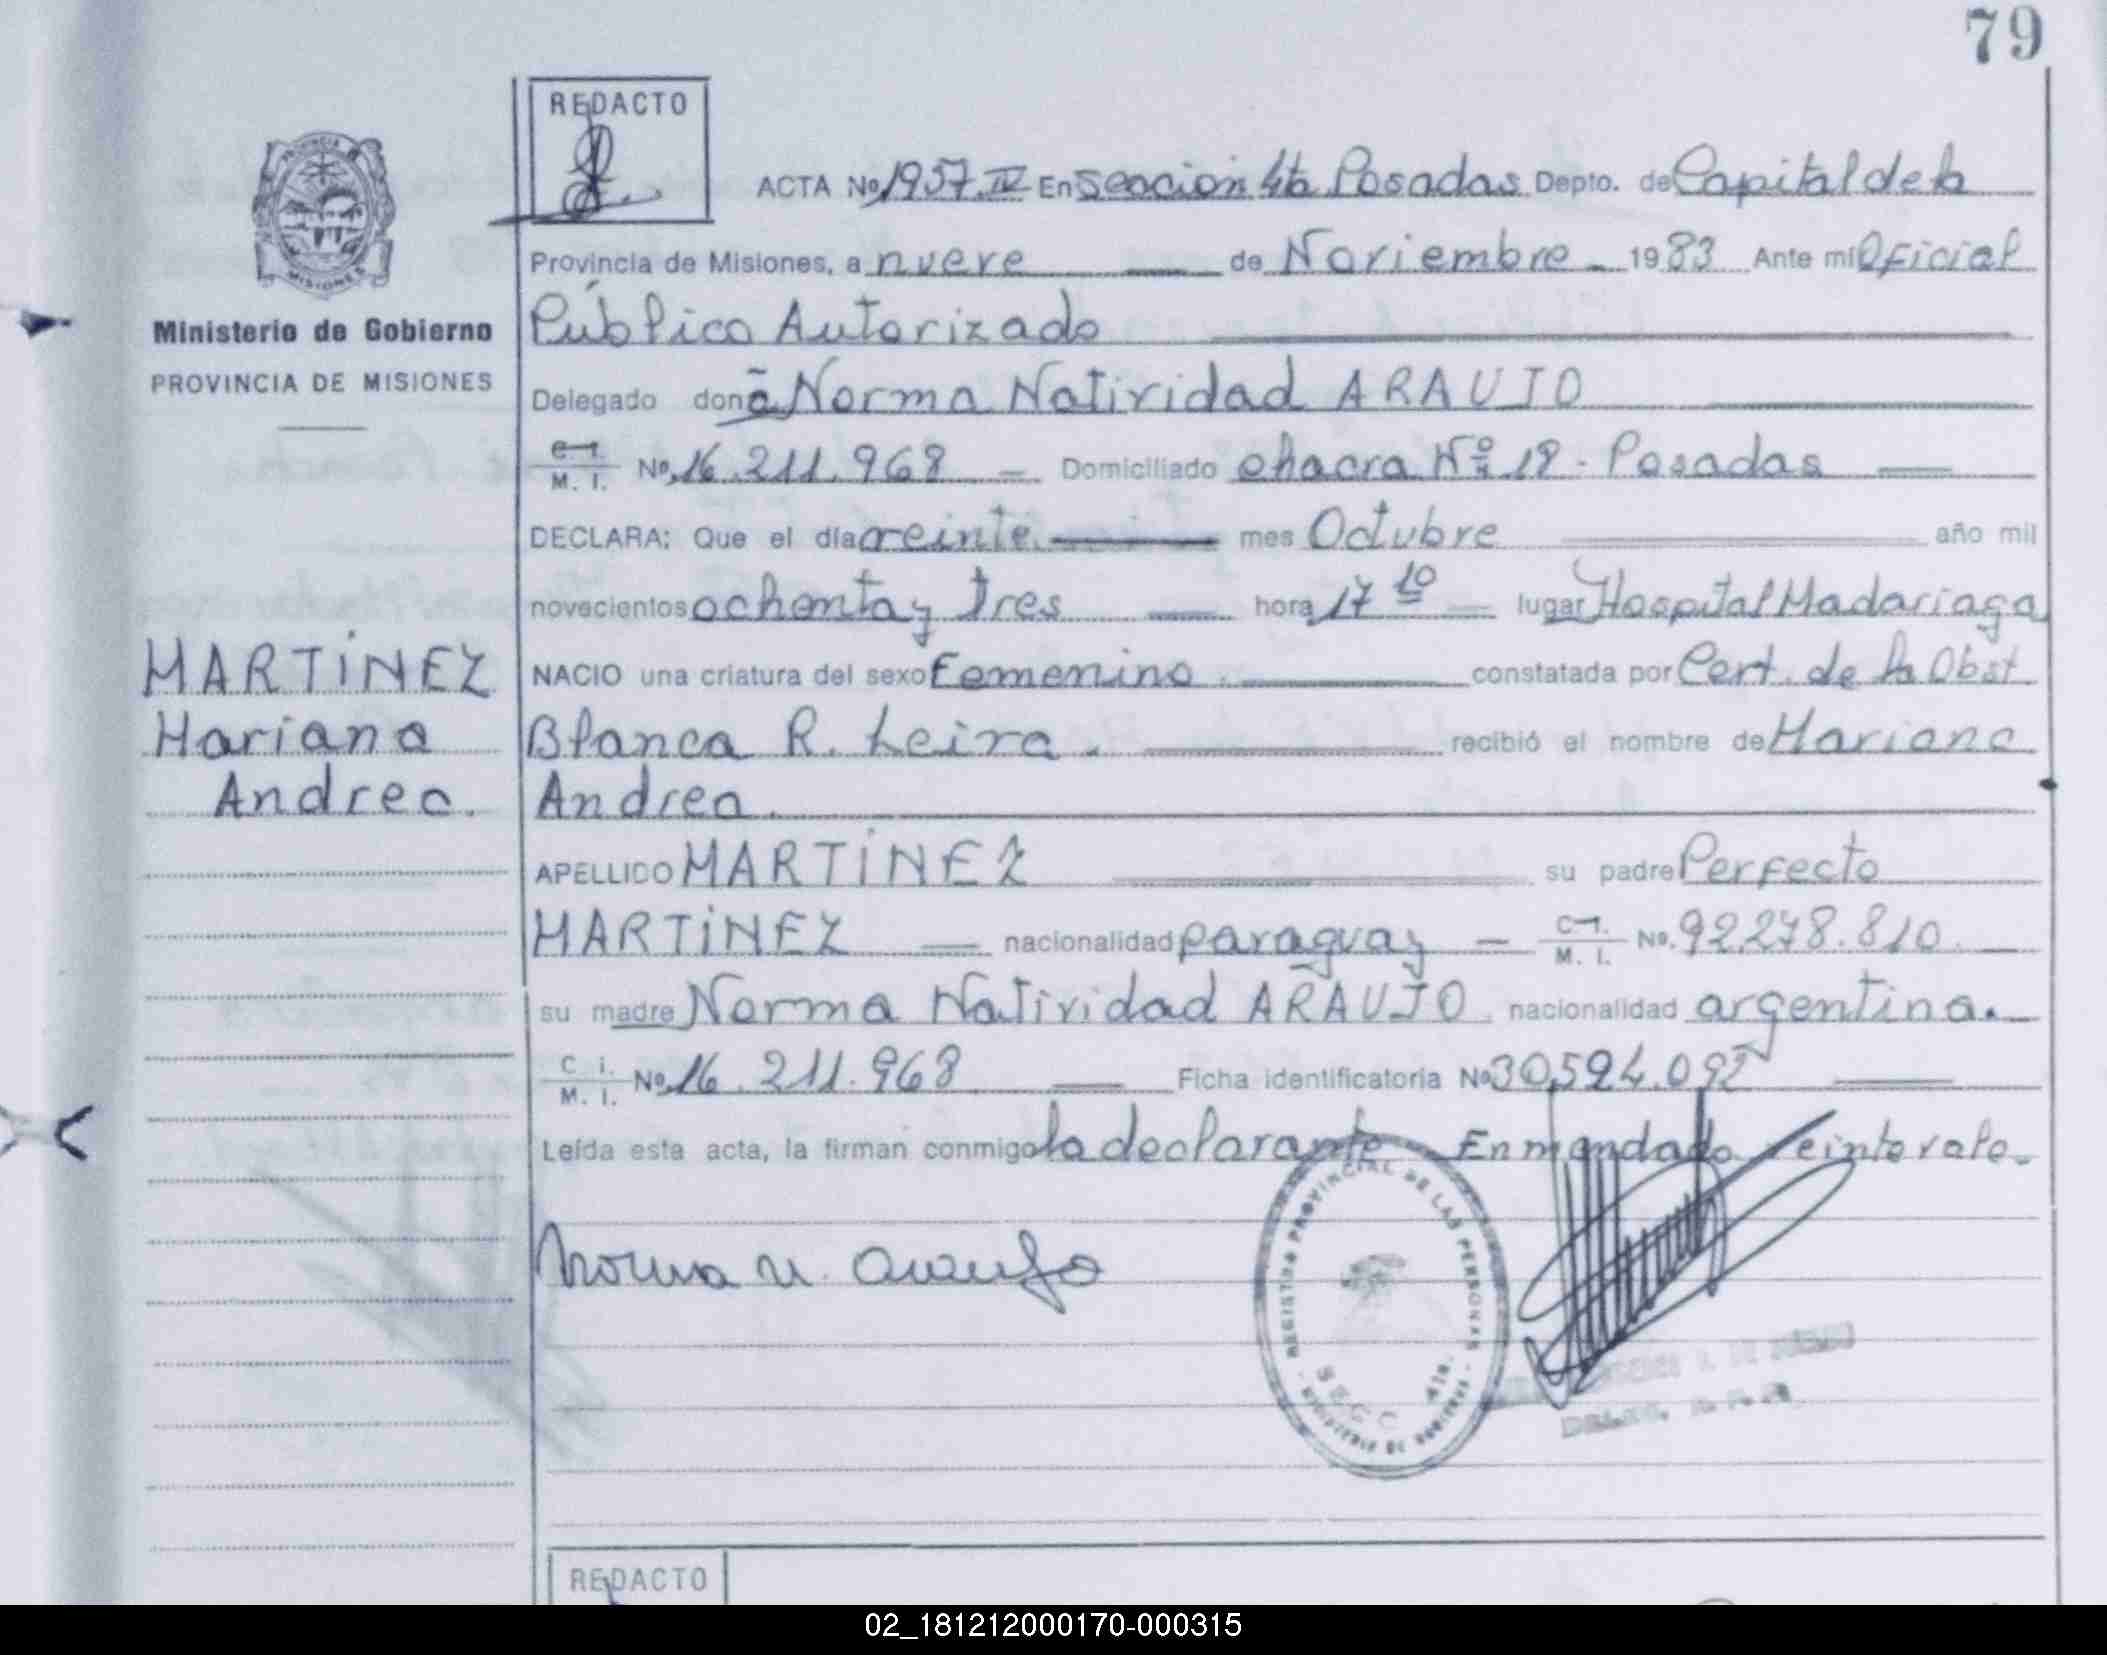 79
REDACTO
ACTA Nº 1957.IV En sección 4ta Posadas Depto. de Capital de la
Provincia de Misiones, a nueve de Noviembre 1983 Ante mi Oficial
Público Autorizado
Delegado don ã Norma Natividad ARAUJO
C. I. / M. I. Nº 16.211.968 Domiciliado chacra Nº 19 - Posadas
DECLARA: Que el día veinte mes Octubre año mil
novecientos ochenta y tres hora 17 10 lugar Hospital Madariaga
NACIO una criatura del sexo Femenino. constatada por Cert. de la Obst
Blanca R. Leiva. recibió el nombre de Mariana
Andrea.
APELLIDO MARTÍNEZ su padre Perfecto
MARTÍNEZ nacionalidad paraguay C. I. / M. I. Nº 92.278.810.
su madre Norma Natividad ARAUJO. nacionalidad argentina.
C. I. / M. I. Nº 16.211.968 Ficha identificatoria Nº 30.524.092
Leída esta acta, la firman conmigo la declarante Enmendado veinte vale.
Norma N. Araujo
REGISTRO PROVINCIAL DE LAS PERSONAS
SECC 4ta.
MINISTERIO DE GOBIERNO
PROVINCIA DE
MISIONES
Ministerio de Gobierno
PROVINCIA DE MISIONES
MARTÍNEZ
Mariana
Andrea.
REDACTO
02_181212000170-000315